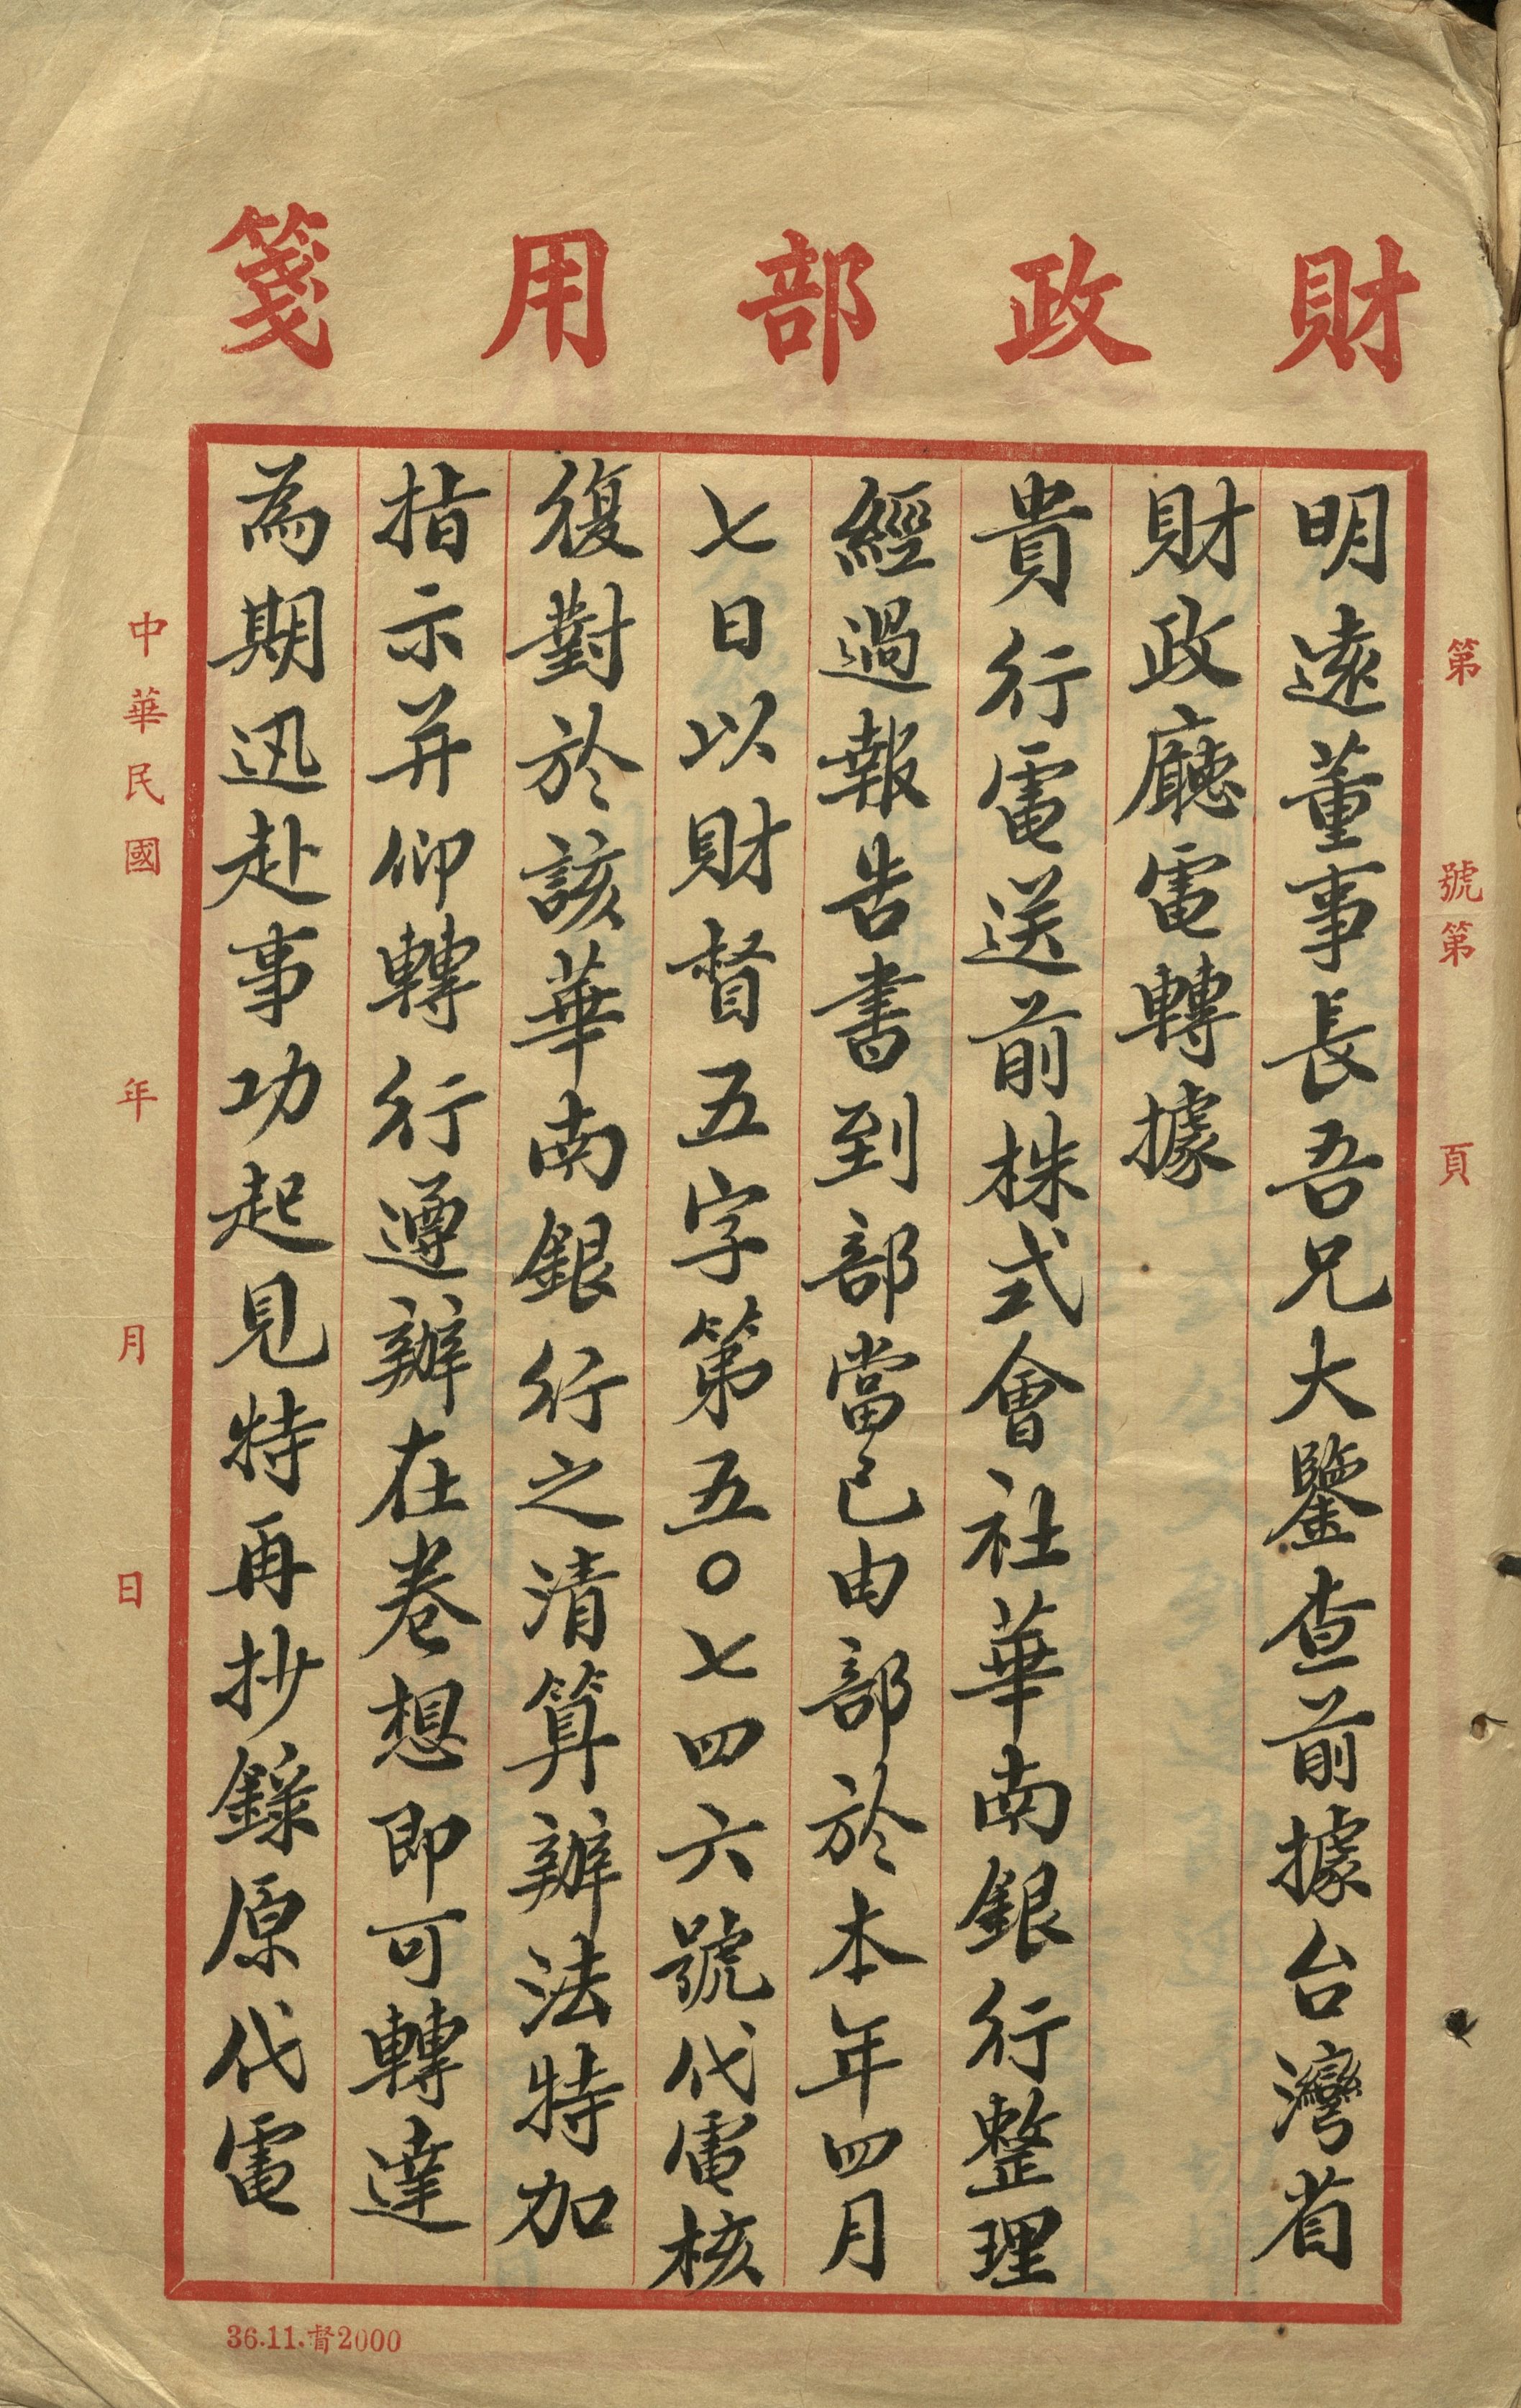 財政部用箋
第　號第　頁
明遠董事長吾兄大鑒查前據台灣省
財政廳電轉據
貴行電送前株式會社華南銀行整理
經過報告書到部當已由部於本年四月
七日以財督五字第五〇七四六號代電核
復對於該華南銀行之清算辦法特加
指示并仰轉行遵辦在卷想即可轉達
為期迅赴事功起見特再抄錄原代電
中華民國　年　月　日
36.11.督2000